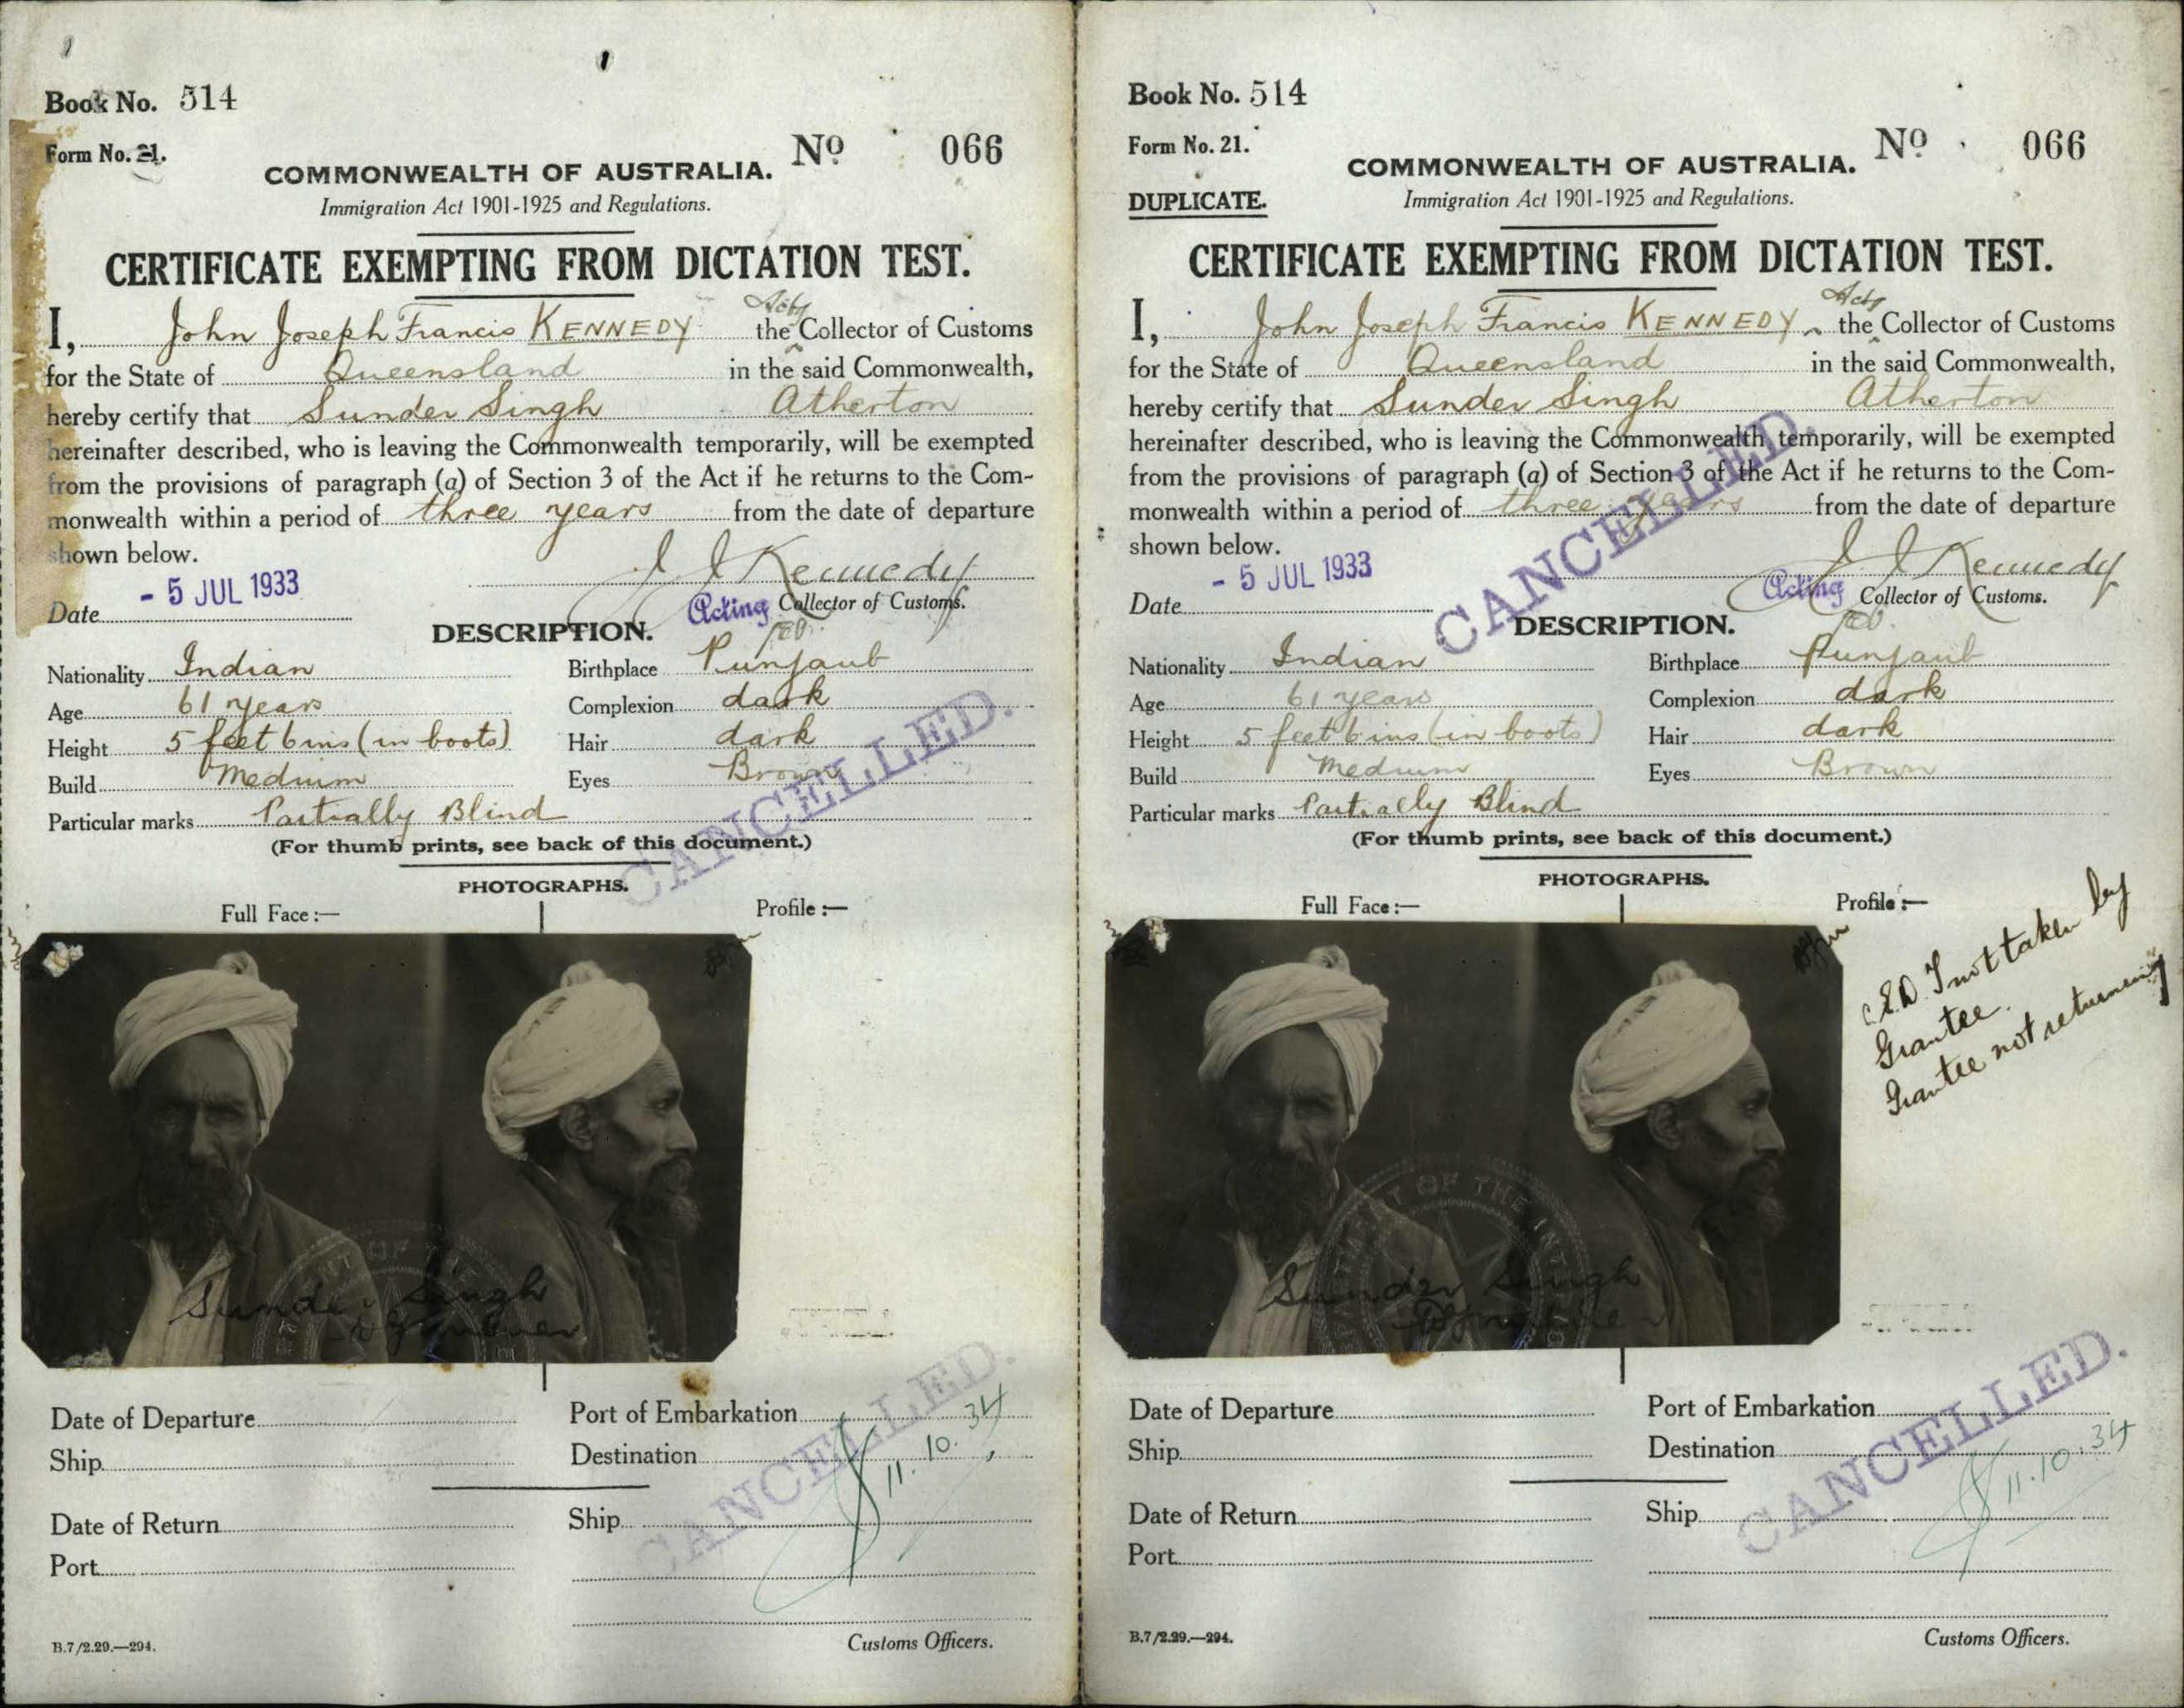 Book No. 514
Form No. 21.
COMMONWEALTH OF AUSTRALIA. No 066
Immigration Act 1901-1925 and Regulations.
CERTIFICATE EXEMPTING FROM DICTATION TEST.
I, John Joseph Francis KENNEDY the Actg Collector of Customs
for the State of Queensland in the said Commonwealth,
hereby certify that Sunder Singh Atherton
hereinafter described, who is leaving the Commonwealth temporarily, will be exempted
from the provisions of paragraph (a) of Section 3 of the Act if he returns to the Com-
monwealth within a period of three years from the date of departure
shown below.
J J Kennedy
Date - 5 JUL 1933
Acting Collector of Customs.
DESCRIPTION.
Nationality Indian Birthplace Punjaub
Age 61 years Complexion dark
Height 5 feet 6 ins (in boots) Hair dark
Build Medium Eyes Brown
Particular marks Partially Blind
(For thumb prints, see back of this document.)
CANCELLED.
PHOTOGRAPHS.
Full Face :— Profile :—
Sunder Singh
Date of Departure Port of Embarkation
Ship Destination
11.10.34
CANCELLED.
Date of Return Ship
Port
B.7/2.29.—294. Customs Officers.
Book No. 514
Form No. 21.
COMMONWEALTH OF AUSTRALIA. No 066
DUPLICATE.
Immigration Act 1901-1925 and Regulations.
CERTIFICATE EXEMPTING FROM DICTATION TEST.
I, John Joseph Francis KENNEDY the Actg Collector of Customs
for the State of Queensland in the said Commonwealth,
hereby certify that Sunder Singh Atherton
hereinafter described, who is leaving the Commonwealth temporarily, will be exempted
from the provisions of paragraph (a) of Section 3 of the Act if he returns to the Com-
monwealth within a period of three years from the date of departure
shown below.
CANCELLED.
J J Kennedy
Date - 5 JUL 1933
Acting Collector of Customs.
DESCRIPTION.
Nationality Indian Birthplace Punjaub
Age 61 years Complexion dark
Height 5 feet 6 ins (in boots) Hair dark
Build Medium Eyes Brown
Particular marks Partially Blind
(For thumb prints, see back of this document.)
PHOTOGRAPHS.
Full Face :— Profile :—
C.E.D.T not taken by
Grantee.
Grantee not returning
Sunder Singh
Date of Departure Port of Embarkation
Ship Destination
11.10.34
CANCELLED.
Date of Return Ship
Port
B.7/2.29.—294. Customs Officers.